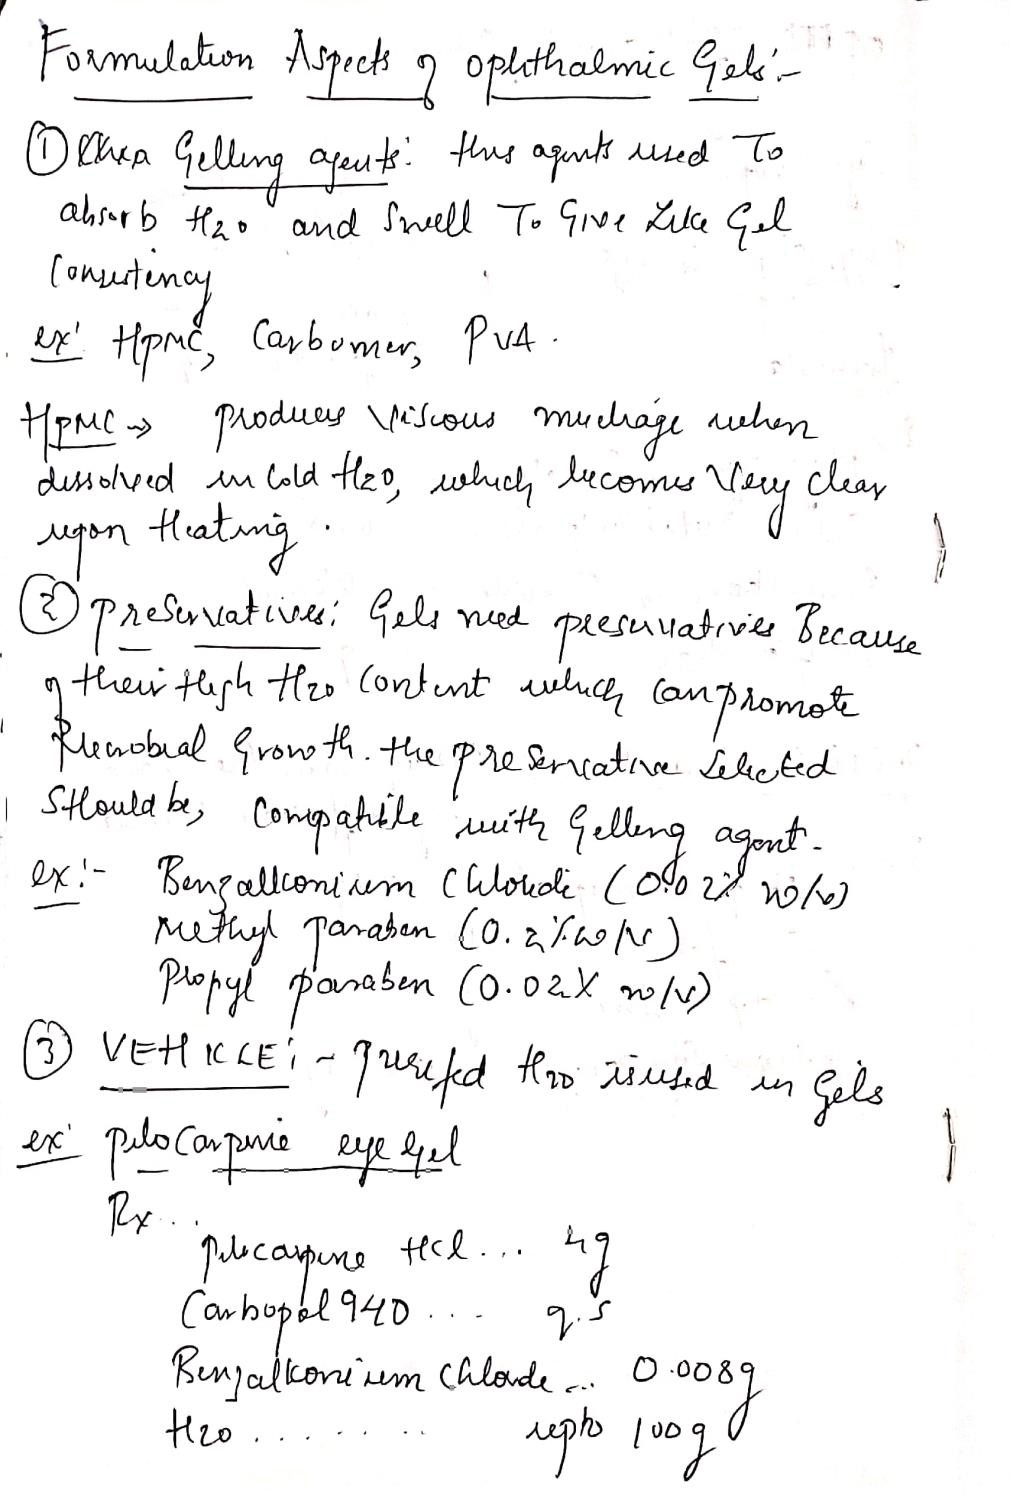 Formulation Aspects of ophthalmic Gels:-
① Gelling agents: this agents used To
absorb H2O and Swell To Give Like Gel
Consistency
ex: HPMC, Carbomer, PVA.
HPMC → produces viscous mucilage when
dissolved in Cold H2O, which becomes Very clear
upon Heating.
② Preservatives: Gels need preservatives Because
of their High H2O Content which can promote
Microbial Growth. the preservative Selected
Should be, Compatible with Gelling agent.
ex:- Benzallconium Chloride (0.02% w/v)
Methyl paraben (0.2% w/v)
Propyl paraben (0.02% w/v)
③ VEHICLE:- purified H2O is used in Gels
ex: pilocarpine eye Gel
Rx..
pilocarpine HCl... 4g
Carbopol 940 ... q.s
Benzalkonium Chloride ... 0.008g
H2O ....... upto 100g